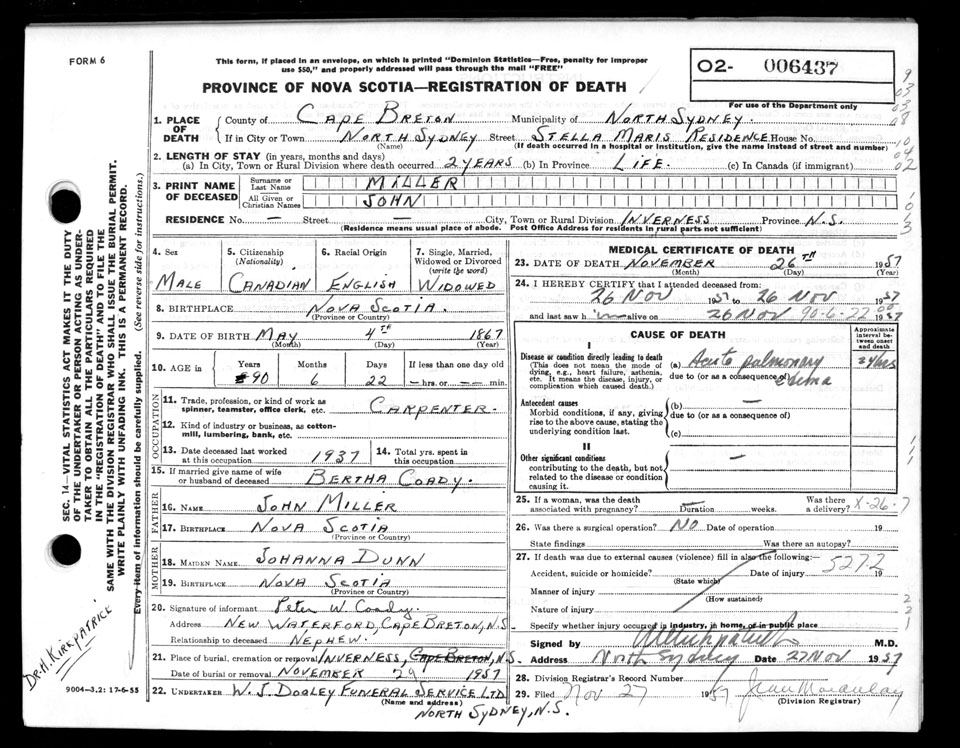 FORM 6
This form, if placed in an envelope, on which is printed "Dominion Statistics—Free, penalty for improper
use $50," and properly addressed will pass through the mail "FREE"
PROVINCE OF NOVA SCOTIA—REGISTRATION OF DEATH
02- 006437
For use of the Department only
1. PLACE OF DEATH
County of CAPE BRETON Municipality of NORTH SYDNEY.
If in City or Town NORTH SYDNEY Street STELLA MARIS RESIDENCE House No.
(Name) (If death occurred in a hospital or institution, give the name instead of street and number)
2. LENGTH OF STAY (in years, months and days)
(a) In City, Town or Rural Division where death occurred 2 YEARS (b) In Province LIFE. (c) In Canada (if immigrant)
3. PRINT NAME OF DECEASED
Surname or Last Name MILLER
All Given or Christian Names JOHN
RESIDENCE No. — Street — City, Town or Rural Division INVERNESS Province N.S.
(Residence means usual place of abode. Post Office Address for residents in rural parts not sufficient)
4. Sex
MALE
5. Citizenship (Nationality)
CANADIAN
6. Racial Origin
ENGLISH
7. Single, Married, Widowed or Divorced (write the word)
WIDOWED
8. BIRTHPLACE NOVA SCOTIA.
(Province or Country)
9. DATE OF BIRTH MAY 4TH 1867
(Month) (Day) (Year)
10. AGE in
Years Months Days If less than one day old
90 6 22 — hrs. or — min.
OCCUPATION
11. Trade, profession, or kind of work as spinner, teamster, office clerk, etc. CARPENTER.
12. Kind of industry or business, as cotton-mill, lumbering, bank, etc.
13. Date deceased last worked at this occupation 1937
14. Total yrs. spent in this occupation
15. If married give name of wife or husband of deceased BERTHA COADY.
FATHER
16. NAME JOHN MILLER
17. BIRTHPLACE NOVA SCOTIA
(Province or Country)
MOTHER
18. MAIDEN NAME JOHANNA DUNN
19. BIRTHPLACE NOVA SCOTIA
(Province or Country)
20. Signature of informant Peter W. Coady.
Address NEW WATERFORD, CAPE BRETON, N.S.
Relationship to deceased NEPHEW.
21. Place of burial, cremation or removal INVERNESS, CAPE BRETON, N.S.
Date of burial or removal NOVEMBER 29 1957
22. UNDERTAKER W. J. DOOLEY FUNERAL SERVICE LTD
(Name and address)
NORTH SYDNEY, N.S.
MEDICAL CERTIFICATE OF DEATH
23. DATE OF DEATH NOVEMBER 26TH 1957
(Month) (Day) (Year)
24. I HEREBY CERTIFY that I attended deceased from:
26 Nov 1957 to 26 Nov 1957
and last saw him alive on 26 Nov 1957
90-6-22
CAUSE OF DEATH
Approximate interval between onset and death
I
Disease or condition directly leading to death
(This does not mean the mode of dying, e.g., heart failure, asthenia, etc. It means the disease, injury, or complication which caused death.)
(a) Acute pulmonary edema
due to (or as a consequence of)
Antecedent causes
Morbid conditions, if any, giving rise to the above cause, stating the underlying condition last.
(b) —
due to (or as a consequence of)
(c)
II
Other significant conditions
contributing to the death, but not related to the disease or condition causing it.
—
25. If a woman, was the death associated with pregnancy? Duration weeks. Was there a delivery?
X-26-7
26. Was there a surgical operation? NO Date of operation 19
State findings Was there an autopsy?
27. If death was due to external causes (violence) fill in also the following:
527.2
Accident, suicide or homicide? Date of injury 19
(State which)
Manner of injury
(How sustained)
Nature of injury
Specify whether injury occurred in industry, in home, or in public place
Signed by M.D.
Address North Sydney Date 27 Nov 1957
28. Division Registrar's Record Number
29. Filed Nov 27 1957
(Division Registrar)
SEC. 14—VITAL STATISTICS ACT MAKES IT THE DUTY
OF THE UNDERTAKER OR PERSON ACTING AS UNDER-
TAKER TO OBTAIN ALL THE PARTICULARS REQUIRED
IN THE "REGISTRATION OF DEATH" AND TO FILE THE
SAME WITH THE DIVISION REGISTRAR WHO SHALL ISSUE THE BURIAL PERMIT.
WRITE PLAINLY WITH UNFADING INK. THIS IS A PERMANENT RECORD.
Every item of information should be carefully supplied. (See reverse side for instructions.)
DR. H. KIRKPATRICK
9004-3.2: 17-6-55